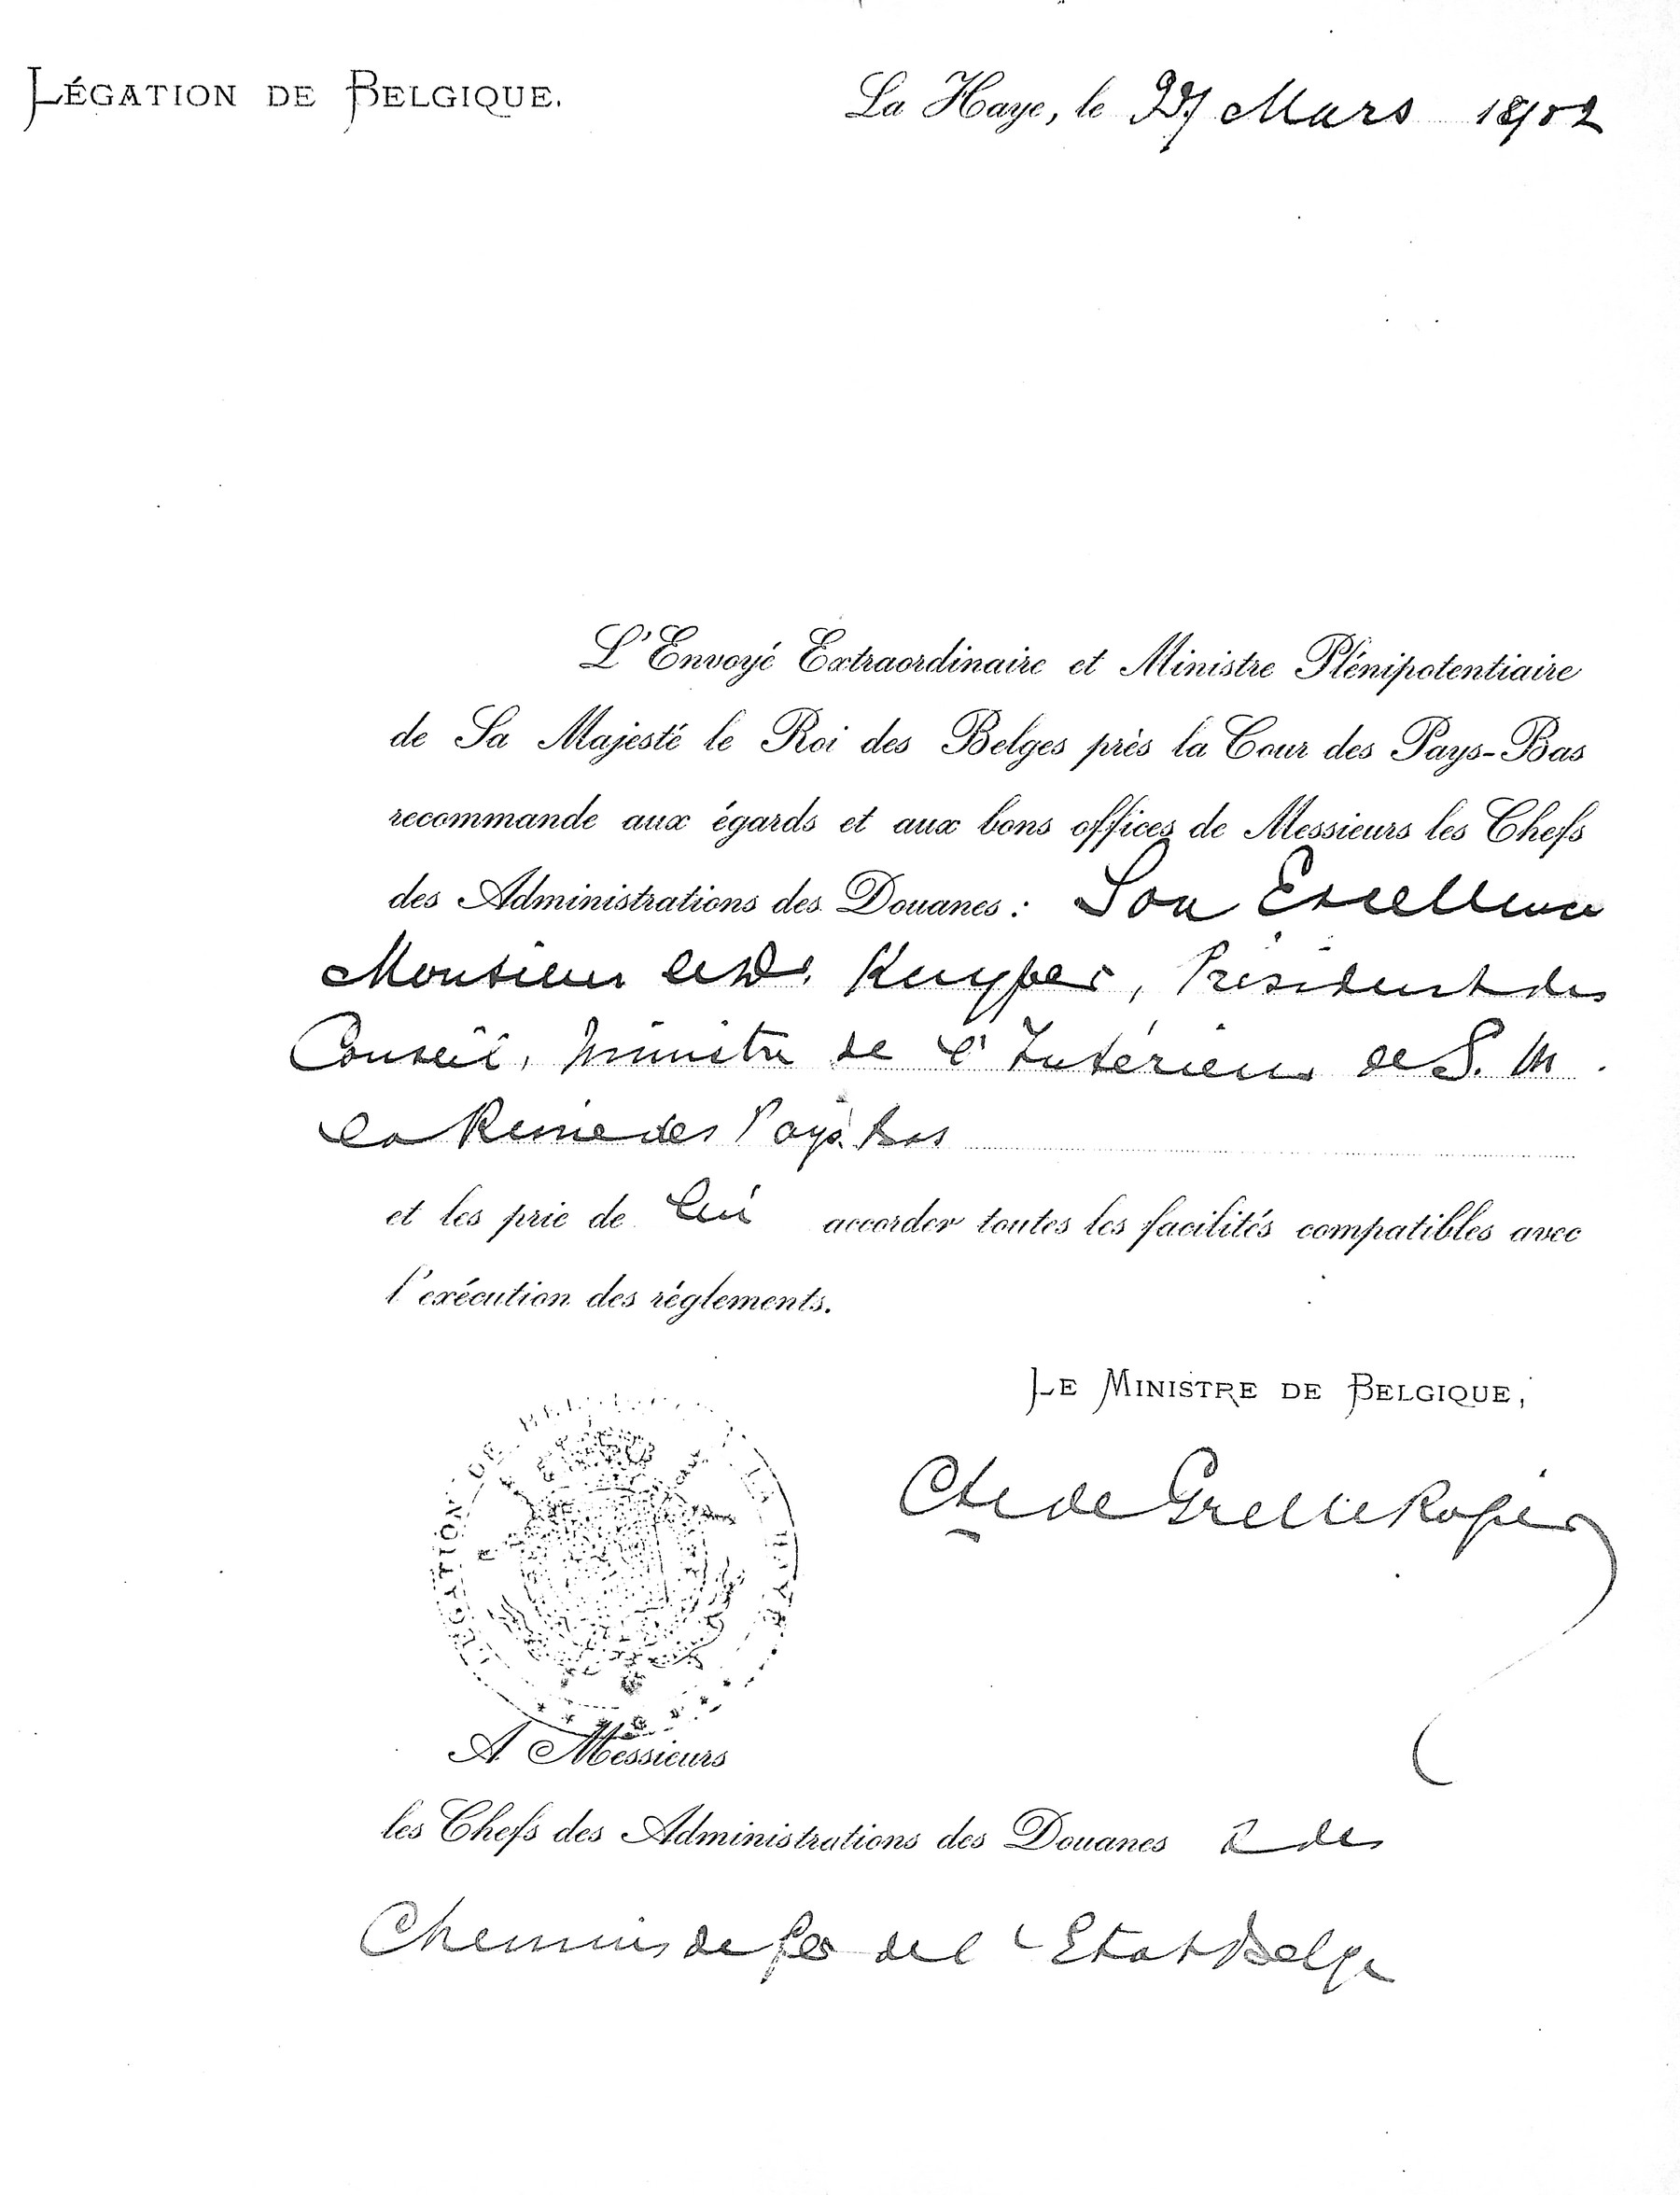 LÉGATION DE BELGIQUE.
La Haye, le 27 Mars 1902
L'Envoyé Extraordinaire et Ministre Plénipotentiaire
de Sa Majesté le Roi des Belges près la Cour des Pays-Bas
recommande aux égards et aux bons offices de Messieurs les Chefs
des Administrations des Douanes : Son Excellence
Monsieur le Dr. Kuyper, Président du
Conseil, Ministre de l'Intérieur de S. M.
la Reine des Pays-Bas
et les prie de lui accorder toutes les facilités compatibles avec
l'exécution des réglements.
LE MINISTRE DE BELGIQUE,
Cte de Grelle Rogier
LÉGATION DE BELGIQUE LA HAYE
A Messieurs
les Chefs des Administrations des Douanes & des
Chemins de fer de l'Etat Belge